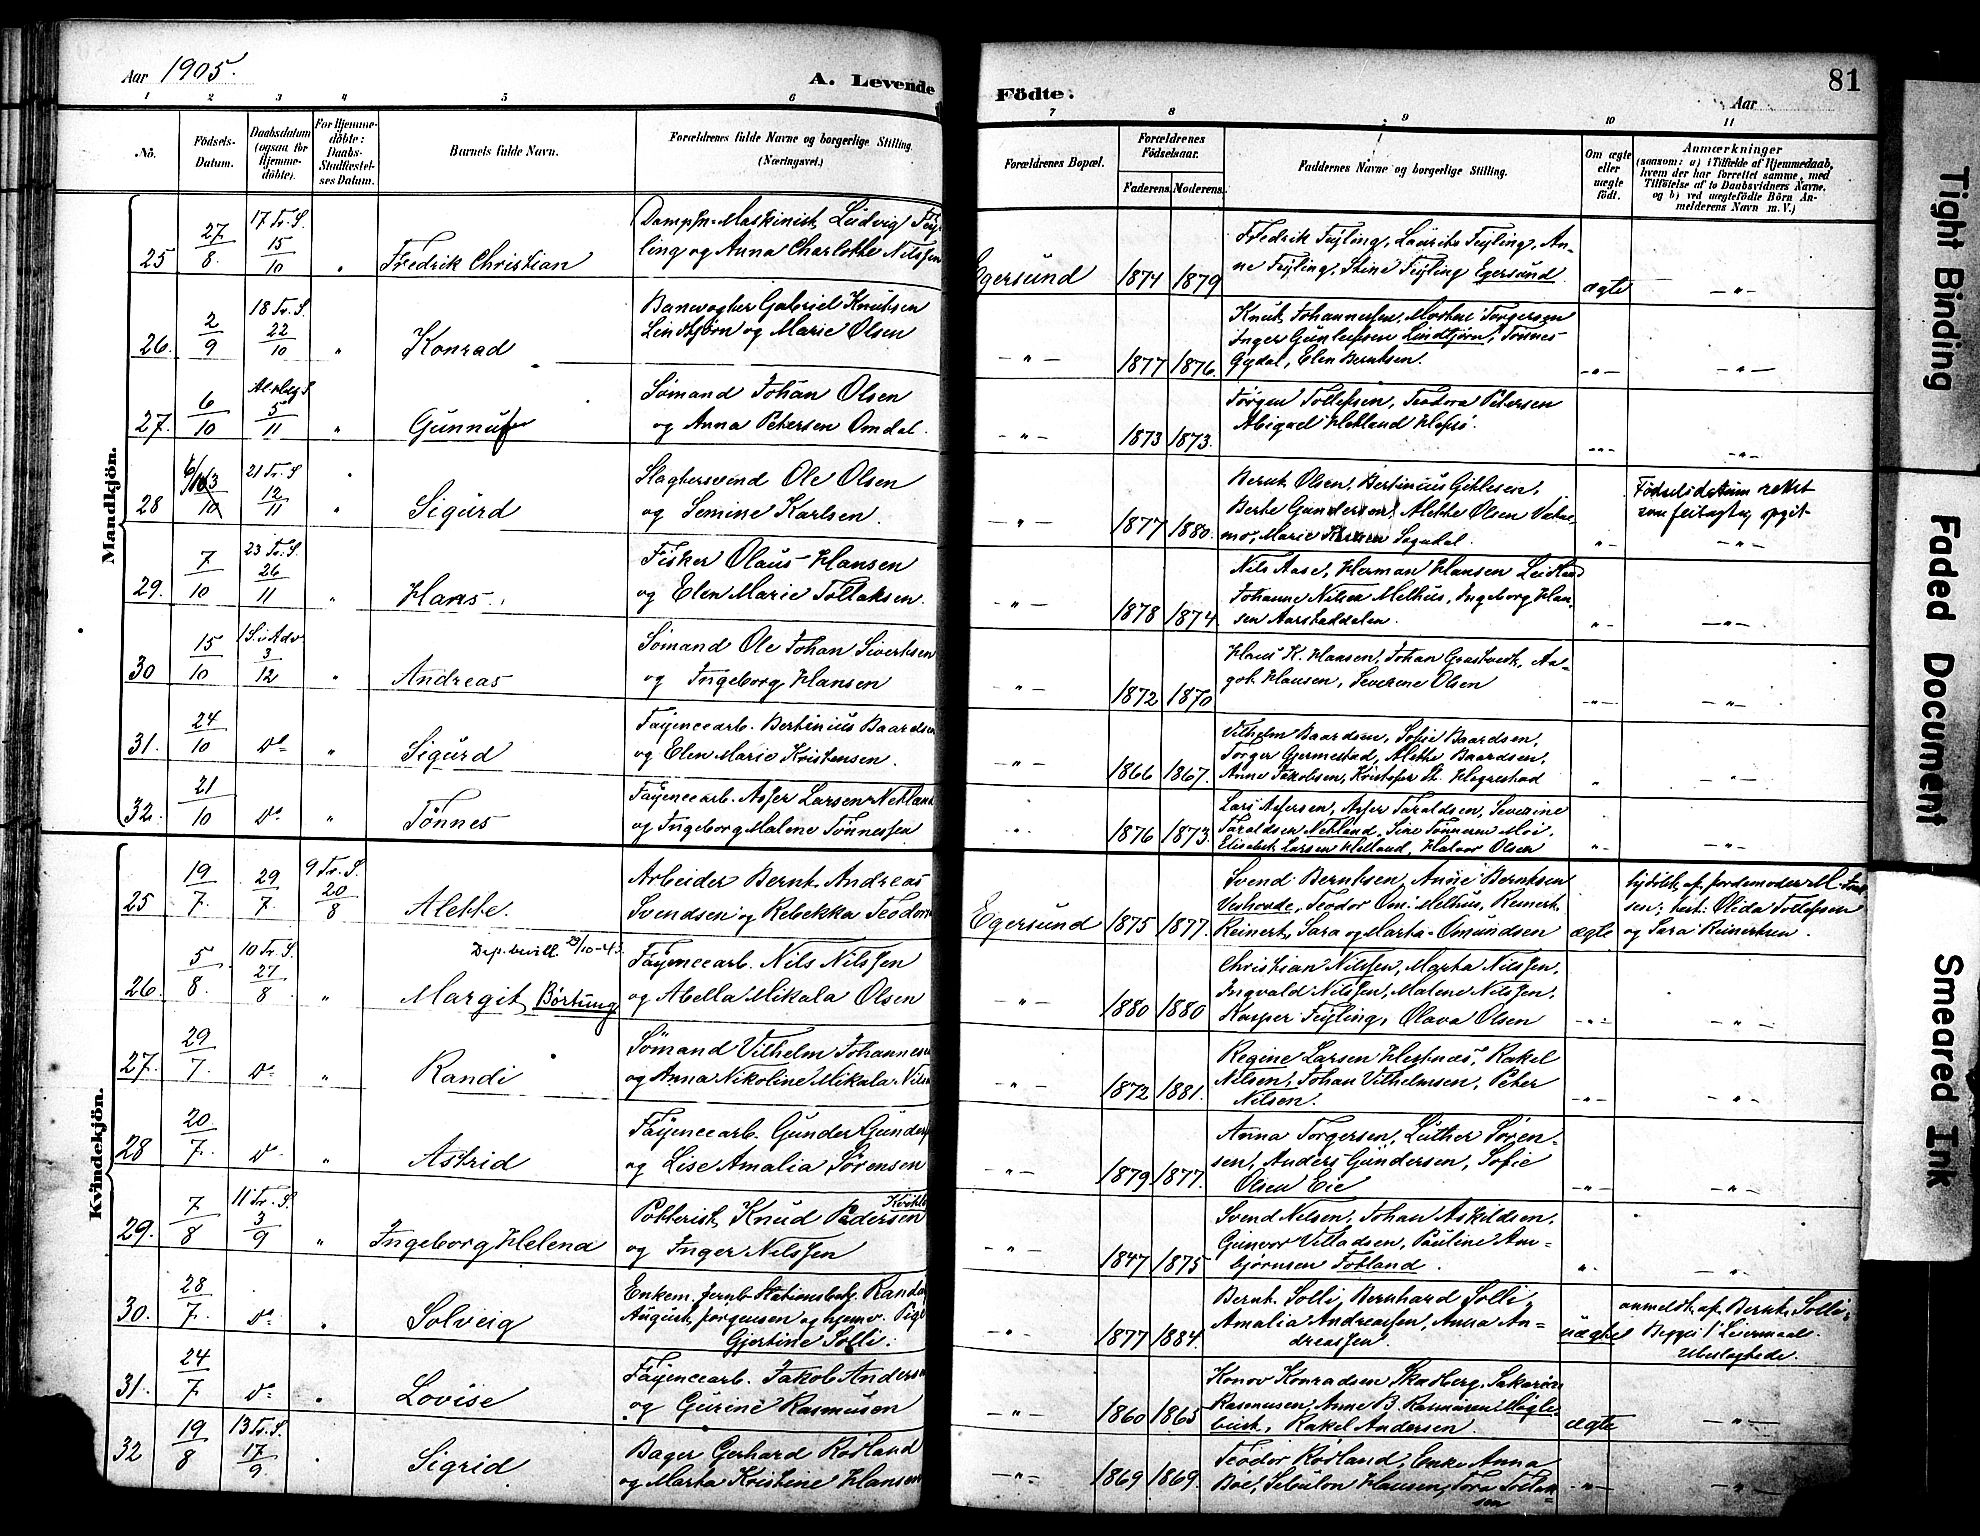 Aar 1905.
A. Levende Födte.
81
Aar
1 2 3 4 5 6 7 8 9 10 11
No.
Födsels-Datum.
Daabsdatum (ogsaa for Hjemmedöbte).
For Hjemmedöbte: Daabs-Stadfæstelses Datum.
Barnets fulde Navn.
Forældrenes fulde Navne og borgerlige Stilling. (Næringsvei.)
Forældrenes Bopæl.
Forældrenes Födselsaar.
Faderens. Moderens.
Faddernes Navne og borgerlige Stilling.
Om ægte eller uægte födt.
Anmærkninger
(saasom: a) i Tilfælde af Hjemmedaab, hvem der har forrettet samme, med Tilföielse af to Daabsvidners Navne, og b) ved uægtefödte Börn Anmelderens Navn m. V.)
Mandkjön.
25 27/8. 17 Tr. S. 15/10 " Fredrik Christian
Dampsk. Maskinist Ludvig Feyling og Anna Charlotte Nilssen
Egersund 1874 1879
Fredrik Feyling, Laurits Feyling, Anne Feyling, Stine Feyling Egersund.
ægte — " —
26. 2/9 18 Tr. S. 22/10 " Konrad
Banevogter Gabriel Knutsen Lindtjørn og Marie Olsen
— " — 1877 1876.
Knut Johannessen, Morten Torgersen
Inger Gunleifsen Lindtjørn, Tønnes
Gydal, Elen Berntsen.
— " — — " —
27. 6/10 5/11 " Gunnuf
Sømand Johan Olsen og Anna Petersen Omdal.
— " — 1873 1873.
Jørgen Tollefsen, Teodora Petersen
Abigael Hetland
— " — — " —
28 6/10 3/10 21 Tr. S. 12/11 " Sigurd
Slagtersvend Ole Olsen og Semine Karlsen.
— " — 1877 1880.
Bernt Olsen, Bertinius Gitlesen,
Berte Gundersen, Alette Olsen
Marie Sogndal.
" Födselsdatum rettet som feilagtig opgit — " —
29. 7/10 23 Tr. S. 26/11 " Hans
Fisker Olaus Hansen og Elen Marie Tollaksen.
— " — 1878 1874.
Nils Aase, Herman Hansen Leidland
Johanne Nilsen Melhus, Ingeborg Hansen Aarstaddalen.
" — " —
30 15/10 1 S. i Adv. 3/12 " Andreas
Sømand Ole Johan Sivertsen og Ingeborg Hansen
— " — 1872 1870
Hans K. Hansen, Johan Grastveit,
Hansen, Severene Olsen
— " — — " —
31. 24/10 do " Sigurd
Fayencearb. Bertinius Baardsen og Elen Marie Kristensen.
— " — 1866 1867.
Vilhelm Baardsen, Sofie Baardsen,
Torger Gjermestad, Alette Baardsen,
Anne Jakobsen, Kristofer St. Hegrestad
" — " —
32. 21/10 do " Tönnes
Fayencearb. Asser Larsen Netland og Ingeborg Malene Tönnessen
" 1876 1873.
Lars Assersen, Asser Taraldsen, Severine
Taraldsen Netland, Sine Tönnesen Moi,
Elisabet Larsen Helland, Halvor Olsen
" — " —
Kvindekjön.
25 19/7. 29/7 9 Tr. S. 20/8 Alette.
Arbeider Bernt Andreas Svendsen og Rebekka Teodora
Egersund 1875 1877.
Svend Berntsen, Anne Berntsen
Teodor Om. Melhus, Reinert
Reinert, Sara og Marta Omundsen
ægte
hjdöbt af jordemoder M.
test: Olida Tollefsen
og Sara Reinertsen.
26. 5/8. 10 Tr. S. 27/8 " Margit Börtung
Dep. bevill. 29/10-43.
Fayencearb. Nils Nilssen og Abella Mikala Olsen
— " — 1880 1880
Christian Nilssen, Marta Nilssen,
Ingvald Nilssen, Malene Nilssen,
Kasper Feyling, Olava Olsen
— " — — " —
27. 29/7. do " Randi
Sömand Vilhelm Johannesen og Anna Nikoline Mikala Nilsen
— " — 1872 1881.
Regine Larsen Hestnes, Rakel
Nilsen, Johan Vilhelmsen, Peter
Nilsen.
— " — — " —
28 20./7. do " Astrid
Fayencearb. Gunder Gunders og Lise Amalia Sörensen
— " — 1879 1877.
Anna Torgersen, Luther Sörensen, Anders Gundersen, Sofie
Olsen Eie
— " — — " —
29. 7/8 11 Tr. S. 3/9 " Ingeborg Helena
Potterist Knud Pedersen og Inger Nilssen
— " — 1847 1875
Svend Nilsen, Johan Askildsen,
Gunvor Villadsen, Pauline Ambjörnsen Tobland.
" — " —
30. 28/7. do " Solveig
Enkem. Jernb. Stationsbetj. Randor August Jørgensen og hjemv. Pige Gjertine Solli.
— " — 1877 1884.
Bernt Solli, Bernhard Solli,
Amalia Andreassen, Anna Andreassen.
uægte
anmeldt af Bernt Solli;
Begges 1' Leiermaal.
Ubeslægtede.
31. 24/7. do " Lovise
Fayencearb. Jakob Anderse og Gurine Rasmusen
— " — 1860 1865
Konov Konradsen Skadberg, Sakarias
Rasmusen, Anne B. Rasmusen Møglebust, Rakel Andersen.
ægte — " —
32 19/8 13 Tr. S. 17/9 " Sigrid
Bager Gerhard Rödland og Marta Kristine Hansen
— " — 1869 1869.
Teodor Rödland, Enke Anna
Bøe, Sebulon Hansen, Tora Tollaksen
— " — — " —
Tight Binding
Faded Document
Smeared Ink